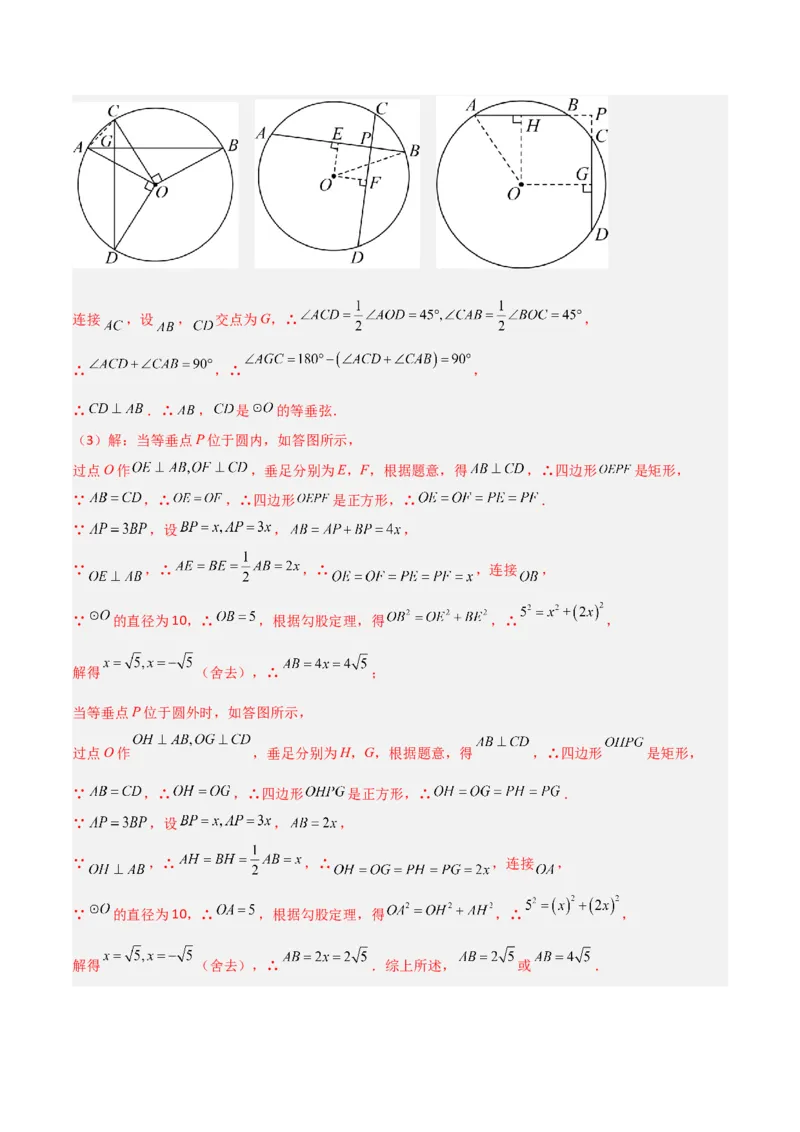 C
A
G
B
O
D
C
A
E
P
B
O
F
D
A
B
P
H
C
G
O
D
连接AC,设AB,CD交点为G,∴∠ACD=1/2∠AOD=45°,∠CAB=1/2∠BOC=45°,
∴∠ACD+∠CAB=90°,∴∠AGC=180°-(∠ACD+∠CAB)=90°,
∴CD⊥AB.∴AB,CD是⊙O的等垂弦.
(3)解:当等垂点P位于圆内,如答图所示,
过点O作OE⊥AB,OF⊥CD,垂足分别为E,F,根据题意,得AB⊥CD,∴四边形OEPF是矩形,
∵AB=CD,∴OE=OF,∴四边形OEPF是正方形,∴OE=OF=PE=PF.
∵AP=3BP,设BP=x,AP=3x,AB=AP+BP=4x,
∵OE⊥AB,∴AE=BE=1/2AB=2x,∴OE=OF=PE=PF=x,连接OB,
∵⊙O的直径为10,∴OB=5,根据勾股定理,得OB²=OE²+BE²,∴5²=x²+(2x)²,
解得x=√5,x=-√5(舍去),∴AB=4x=4√5;
当等垂点P位于圆外时,如答图所示,
过点O作OH⊥AB,OG⊥CD,垂足分别为H,G,根据题意,得AB⊥CD,∴四边形OHPG是矩形,
∵AB=CD,∴OH=OG,∴四边形OHPG是正方形,∴OH=OG=PH=PG.
∵AP=3BP,设BP=x,AP=3x,AB=2x,
∵OH⊥AB,∴AH=BH=1/2AB=x,∴OH=OG=PH=PG=2x,连接OA,
∵⊙O的直径为10,∴OA=5,根据勾股定理,得OA²=OH²+AH²,∴5²=(x)²+(2x)²,
解得x=√5,x=-√5(舍去),∴AB=2x=2√5.综上所述,AB=2√5或AB=4√5.